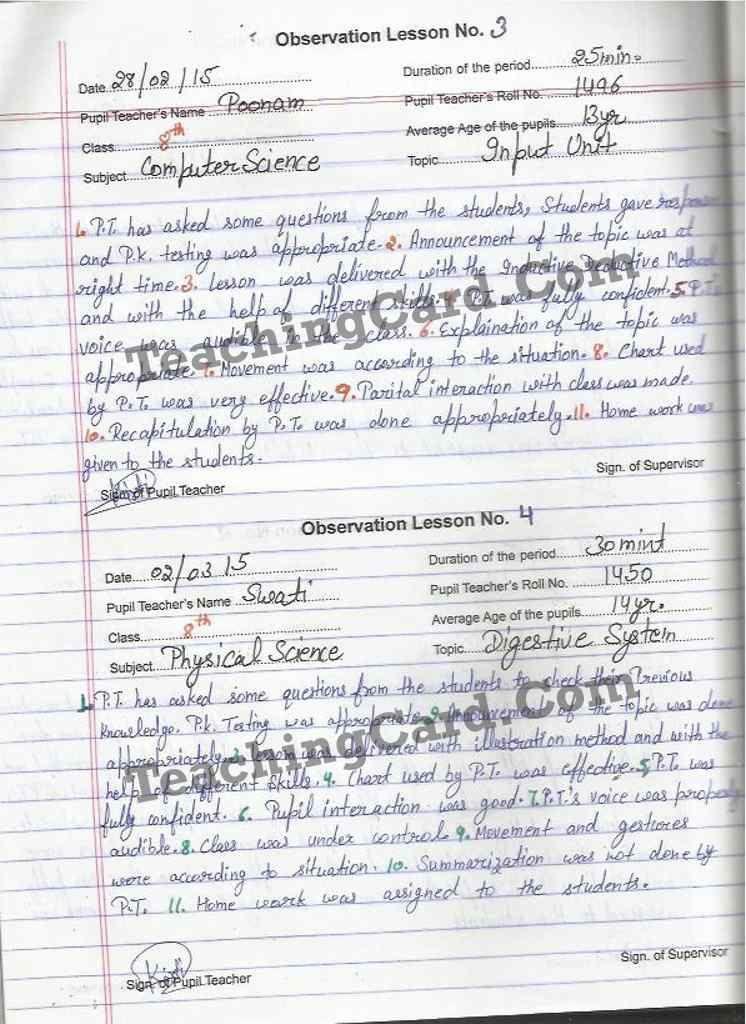 Observation Lesson No. 3
Date 28/02/15
Duration of the period 25min.
Pupil Teacher's Name Poonam
Pupil Teacher's Roll No. 1496
Class 8th
Average Age of the pupils 13yr
Subject Computer Science
Topic Input Unit
1. P.T. has asked some questions from the students, Students gave response
and P.k. testing was appropriate. 2. Announcement of the topic was at
right time. 3. Lesson was delivered with the Inductive Deductive Method
and with the help of different skills. 4. P.T. was fully confident. 5. P.T.
voice was audible in the class. 6. Explaination of the topic was
appropriate. 7. Movement was according to the situation. 8. Chart used
by P.T. was very effective. 9. Parital interaction with class was made.
10. Recapitulation by P.T. was done appropriately. 11. Home work was
given to the students.
Sign of Pupil Teacher
Sign. of Supervisor
Observation Lesson No. 4
Date 02/03 15
Duration of the period 30 mint
Pupil Teacher's Name Swati
Pupil Teacher's Roll No. 1450
Class 8th
Average Age of the pupils 14yr.
Subject Physical Science
Topic Digestive System
1. P.T. has asked some questions from the students to check their Previous
Knowledge. P.k. Testing was appropriate. 2. Announcement of the topic was done
appropriately. 3. Lesson was delivered with illustration method and with the
help of different skills. 4. Chart used by P.T. was effective. 5. P.T. was
fully confident. 6. Pupil interaction was good. 7. P.T.'s voice was properly
audible. 8. Class was under control. 9. Movement and gestures
were according to situation. 10. Summarization was not done by
P.T. 11. Home work was assigned to the students.
Sign. of Pupil Teacher
Sign. of Supervisor
TeachingCard.Com
TeachingCard.Com